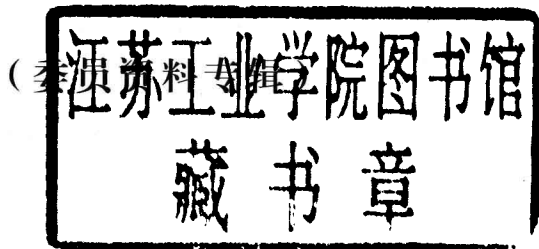 (委员资料专辑)
江苏工业学院图书馆
藏书章